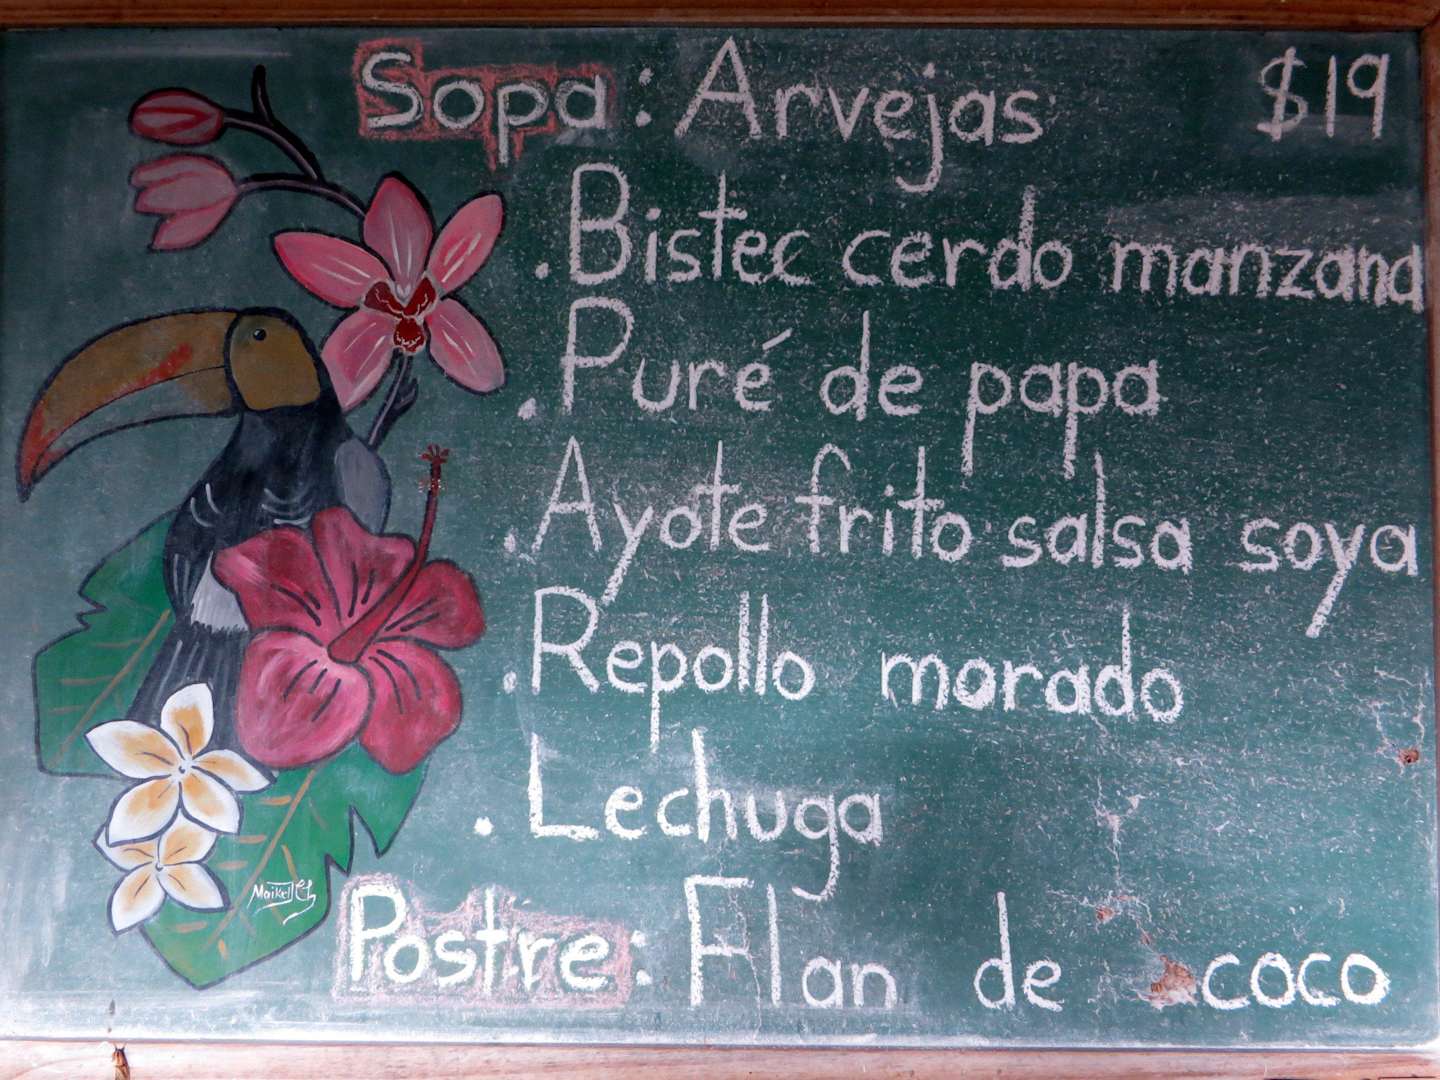 Sopa: Arvejas $19
. Bistec cerdo manzana
. Puré de papa
. Ayote frito salsa soya
. Repollo morado
. Lechuga
Postre: Flan de coco